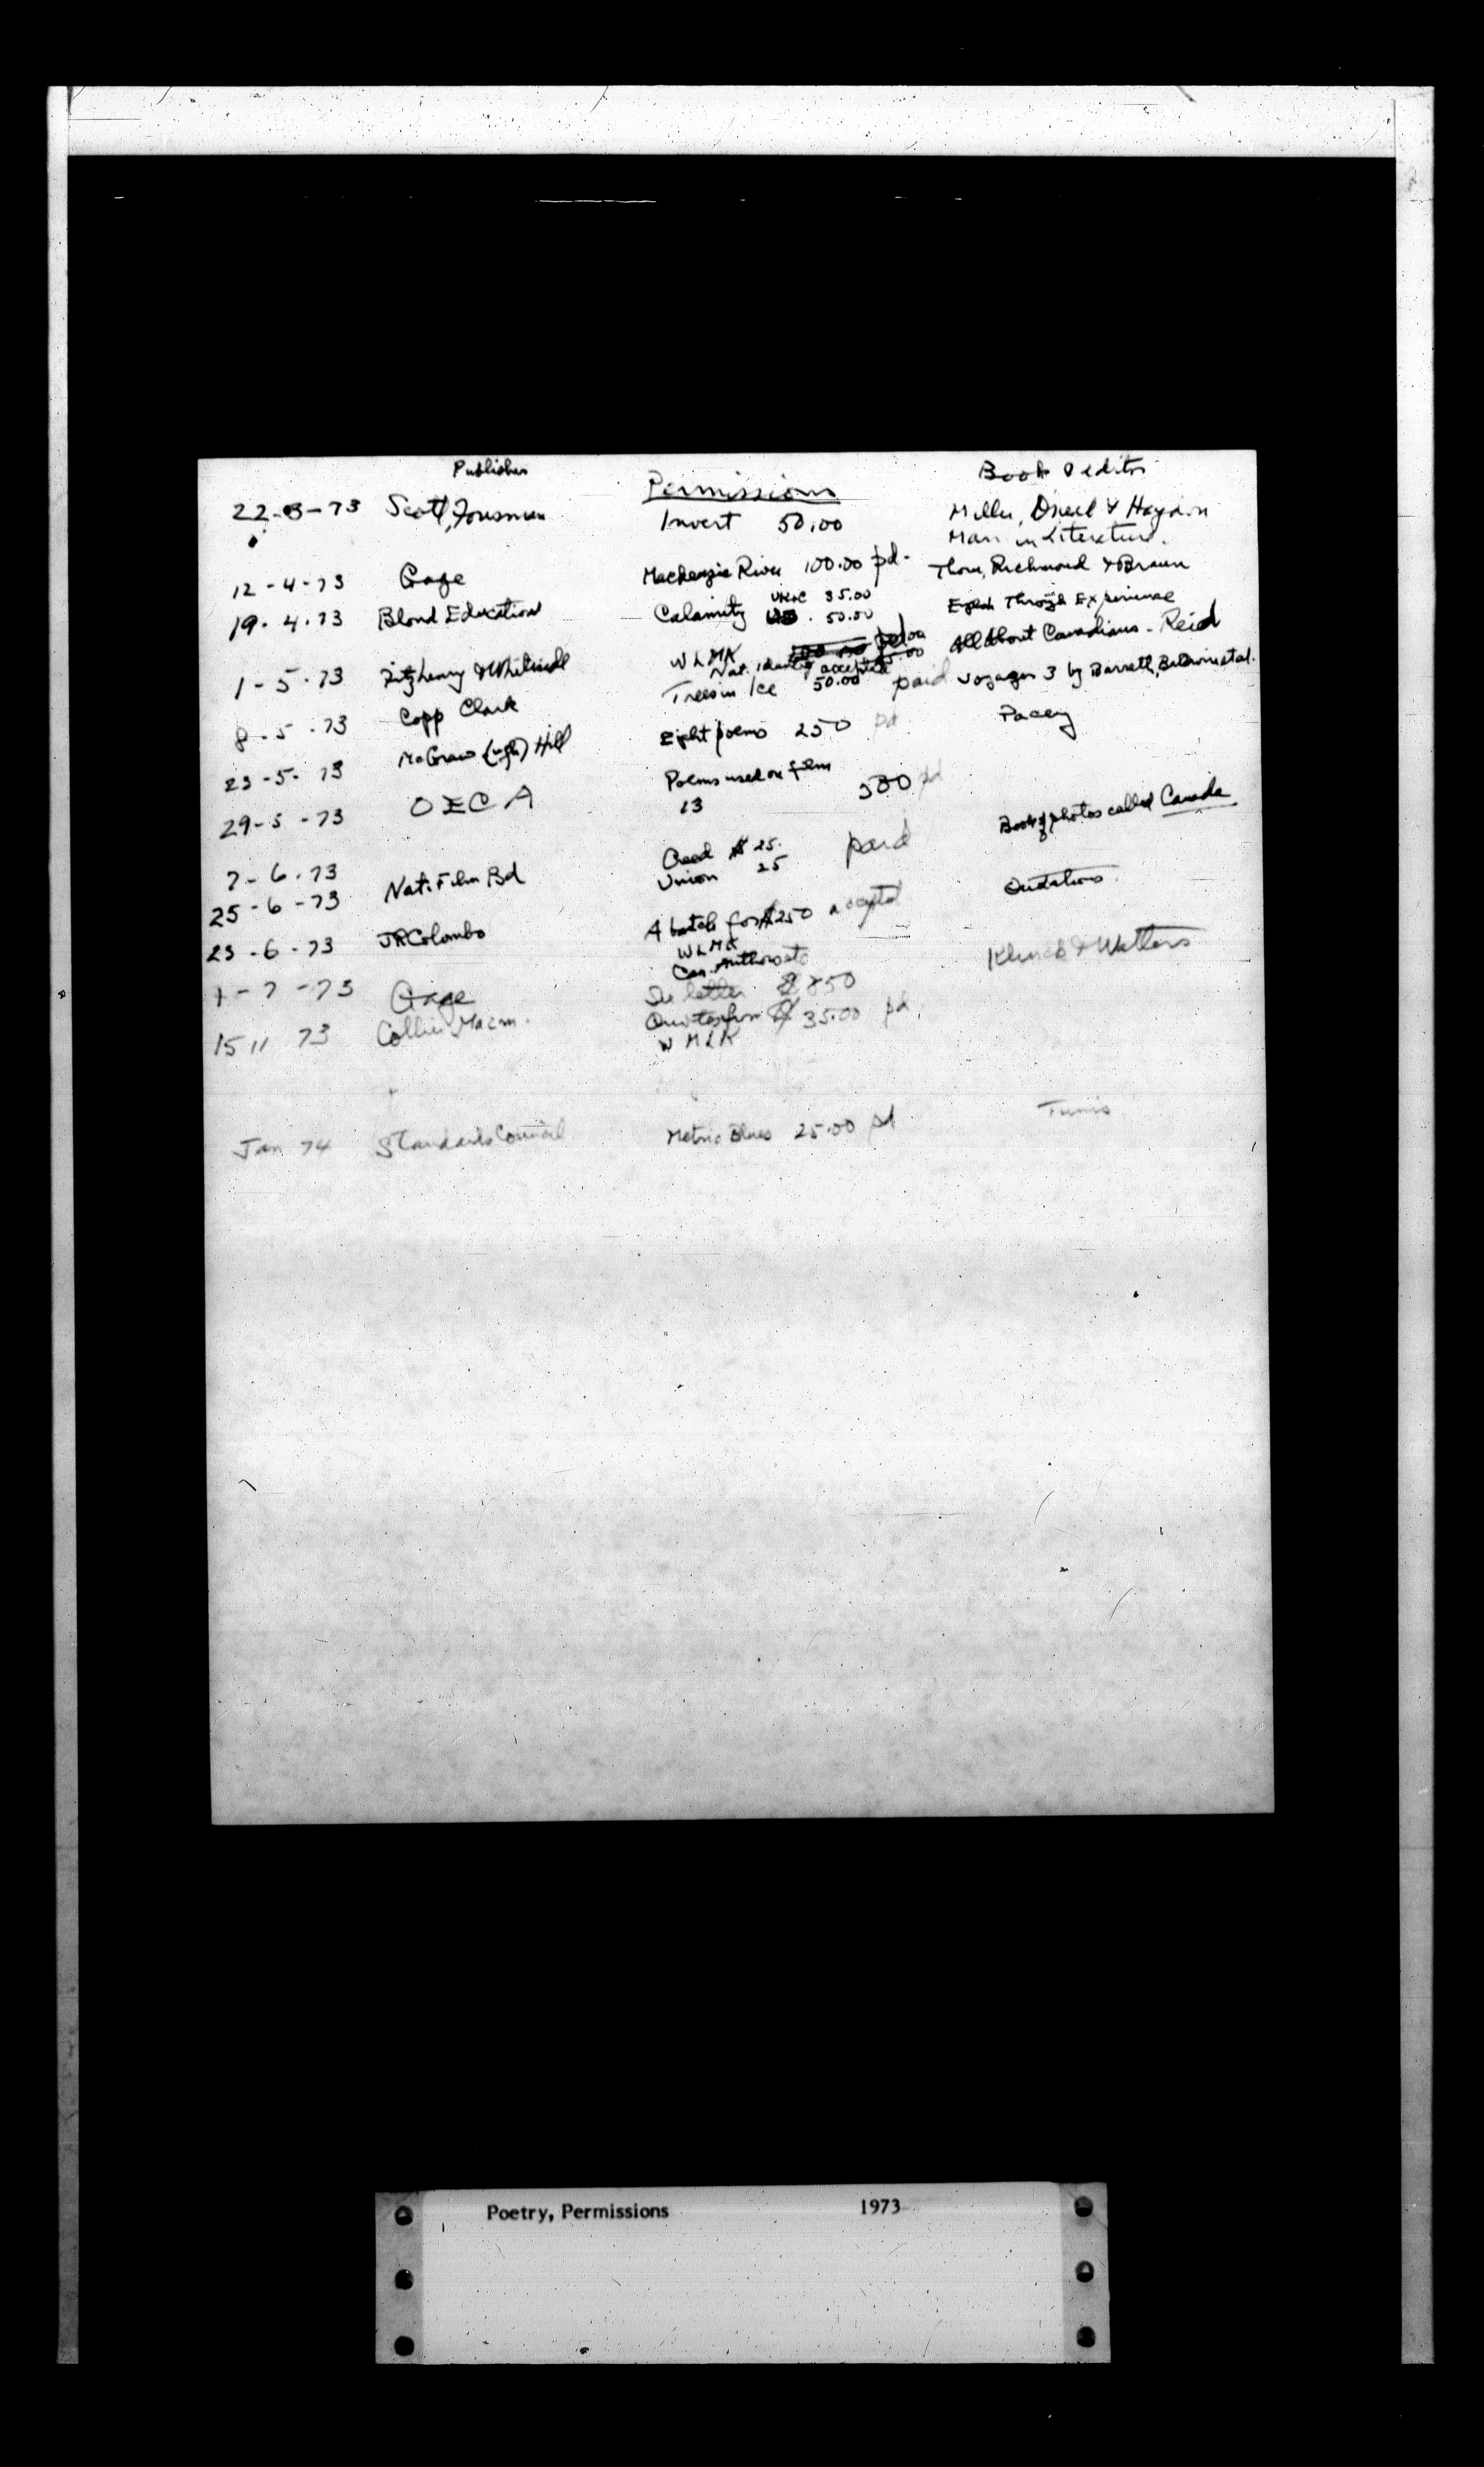 Publisher
Permissions
Book & editor
22-3-73 Scott, Foresman Invert 50.00 Miller, & Hayden
Man in Literature.
12-4-73 Gage Mackenzie River 100.00 pd- Richmond & Braun
19.4.73 Blond Education Calamity 35.00 Through Experience
50.00
1-5-73 Fitzhenry & Whiteside WLMK All About Canadians - Reid
Nat. Identity accepted
8-5-73 Copp Clark Trees in Ice 50.00 paid Voyages 3 by Barrett, Baldwin et al.
23-5-73 McGraw (ugh) Hill Eight poems 250 pd. Pacey
29-5-73 OECA Poems used on film
13 300 pd
7-6-73
25-6-73 Nat. Film Bd Creed $25. paid Book of photos called Canada
Union 25
23-6-73 JRColombo A batch for $250 accepted Quotations
WLMK
Can. Authors etc
1-7-73 Gage See letter 850 Klinck & Watters
15 11 73 Collier Macm. Quotes from 35.00 pd.
W M L K
Jan 74 Standards Council Metric Blues 25.00 pd
Poetry, Permissions 1973